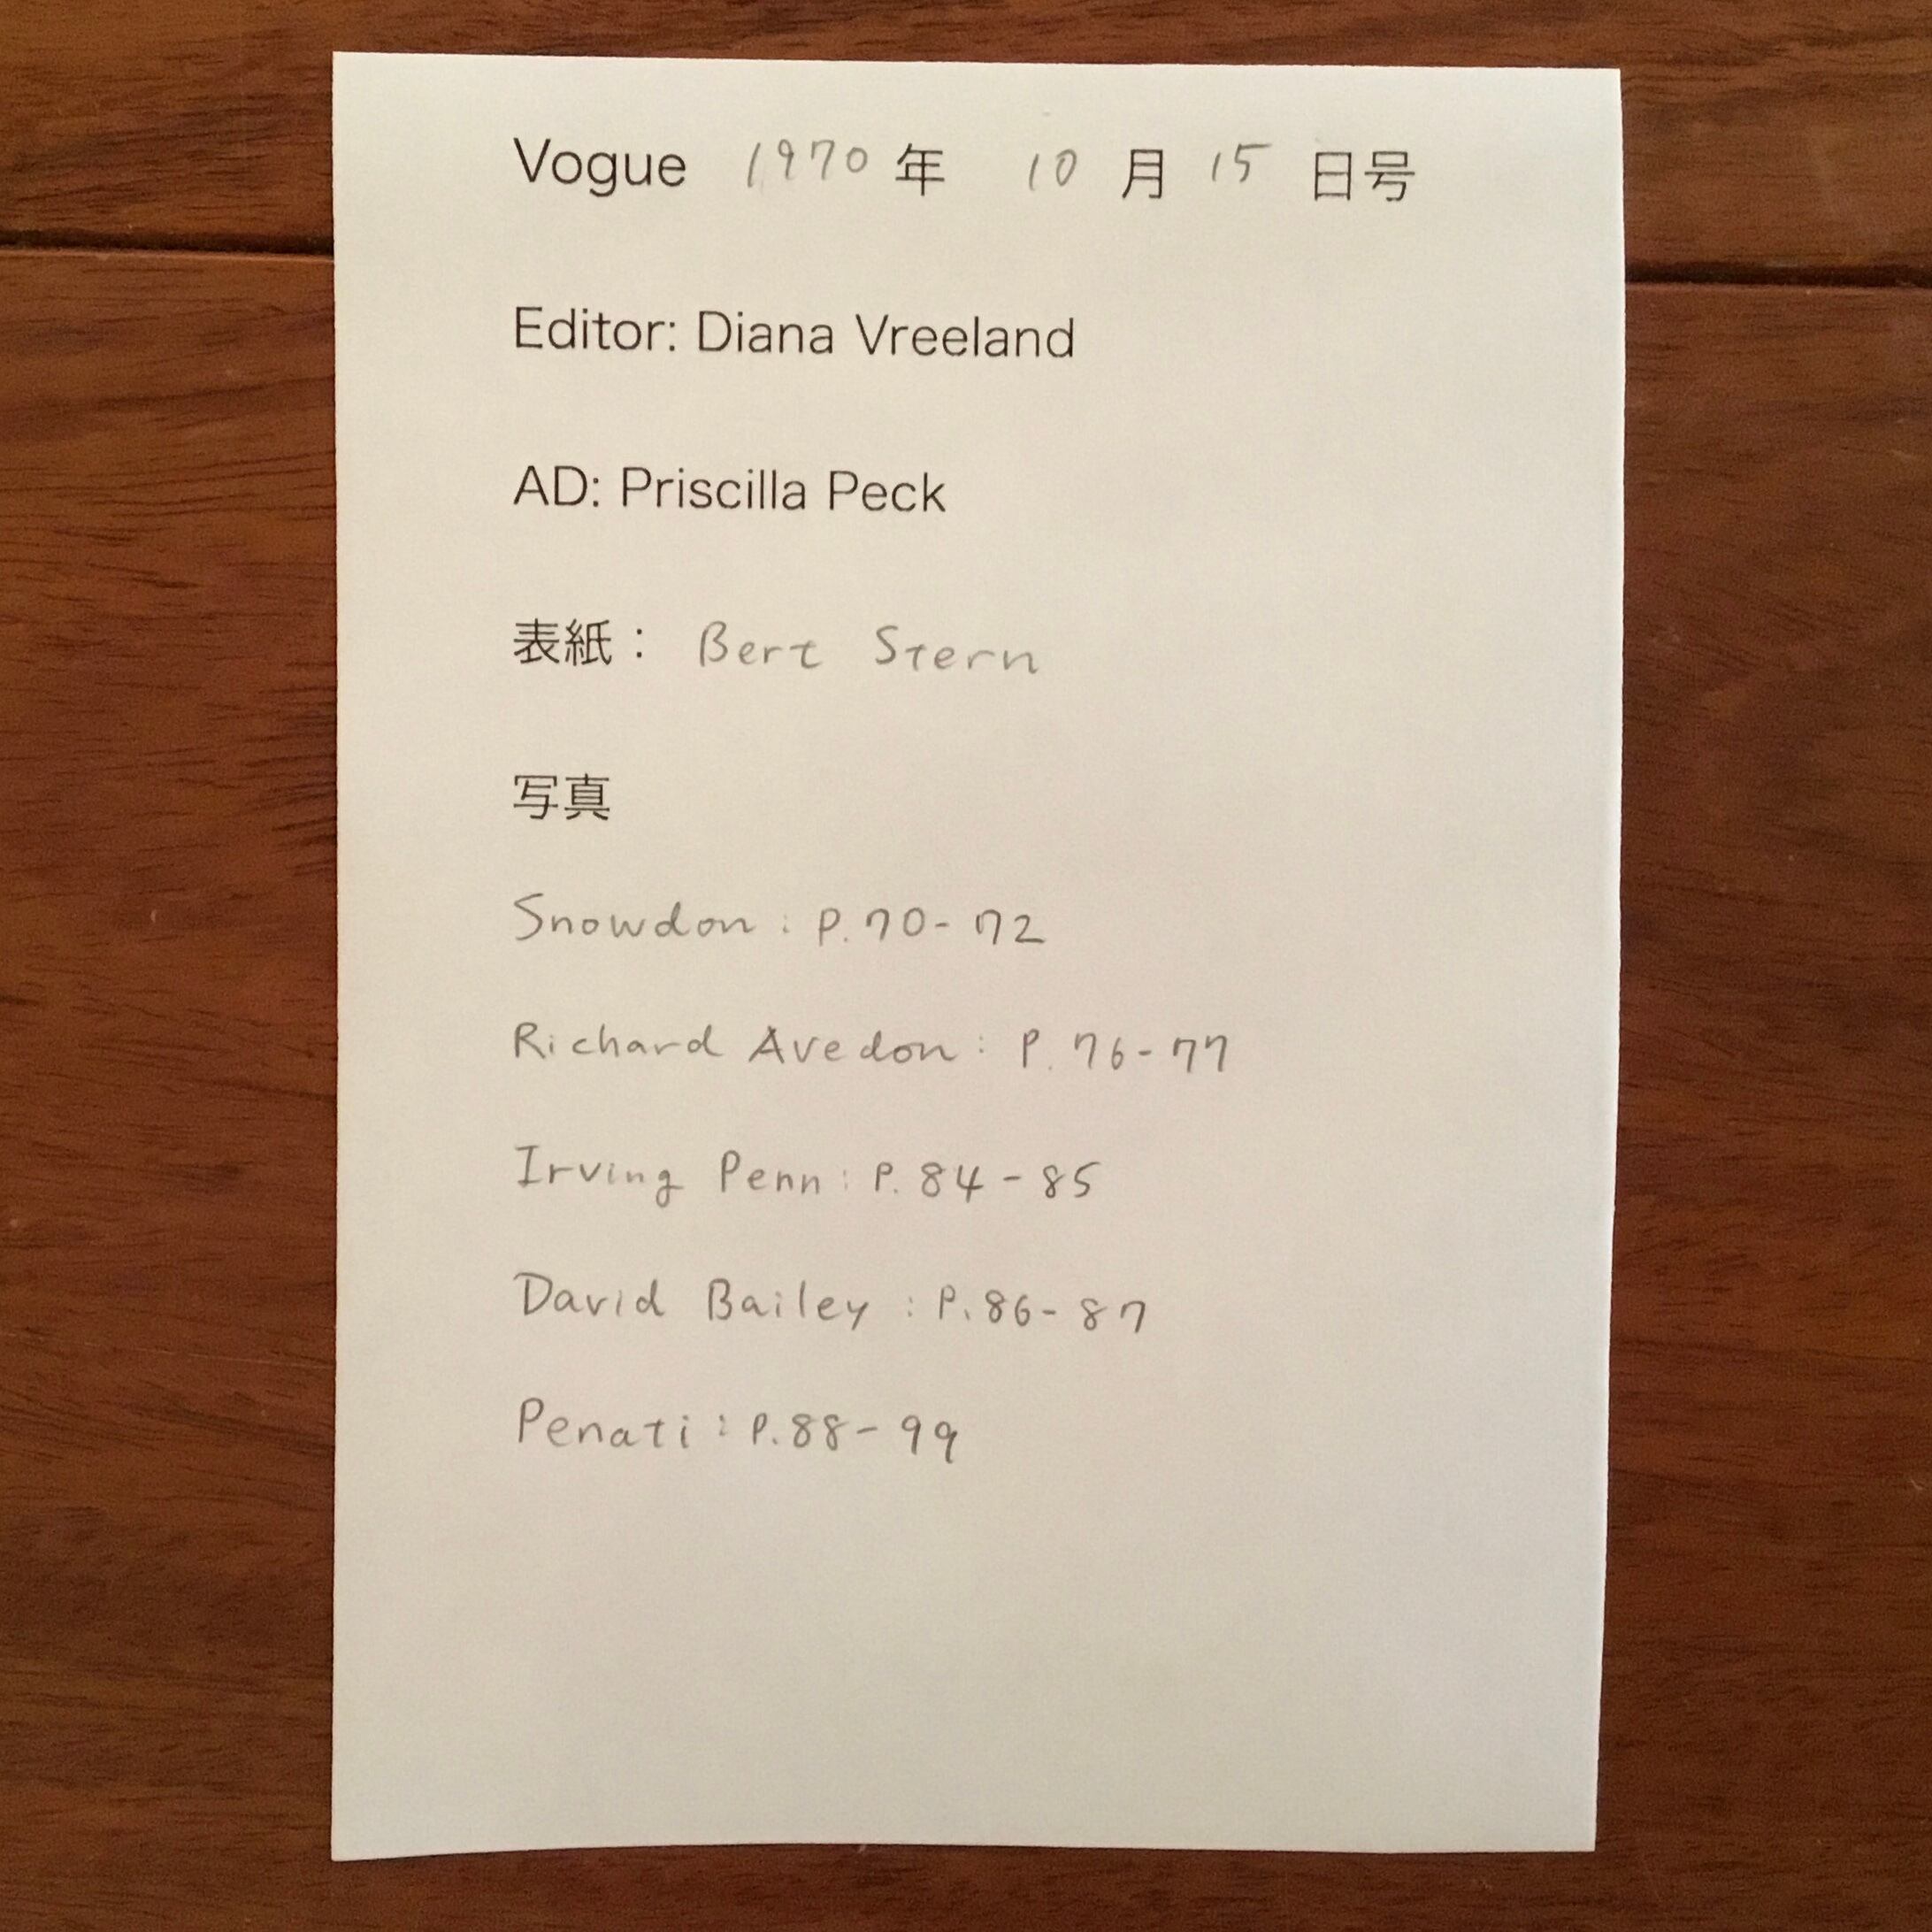 Vogue 1970年 10月15日号
Editor: Diana Vreeland
AD: Priscilla Peck
表紙： Bert Stern
写真
Snowdon: P.70-72
Richard Avedon: P.76-77
Irving Penn: P.84-85
David Bailey: P.86-87
Penati: P.88-99